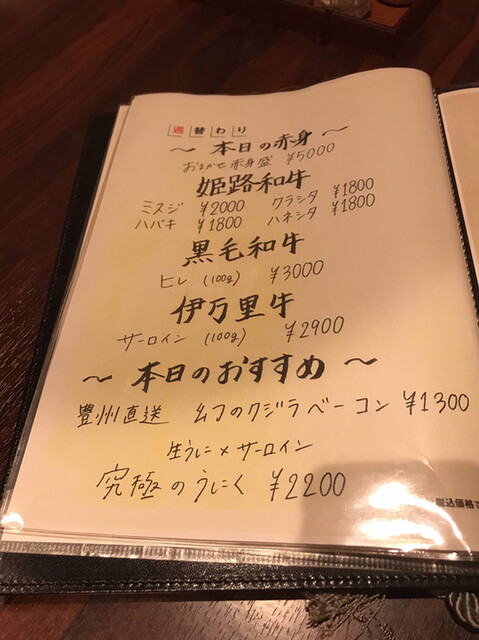 週替わり
〜 本日の赤身 〜
おまかせ赤身盛 ¥5000
姫路和牛
ミスジ ¥2000 クラシタ ¥1800
ハバキ ¥1800 ハネシタ ¥1800
黒毛和牛
ヒレ (100g) ¥3000
伊万里牛
サーロイン (100g) ¥2900
〜 本日のおすすめ 〜
豊州直送 幻のクジラベーコン ¥1300
生うに×サーロイン
究極のうにく ¥2200
税込価格で